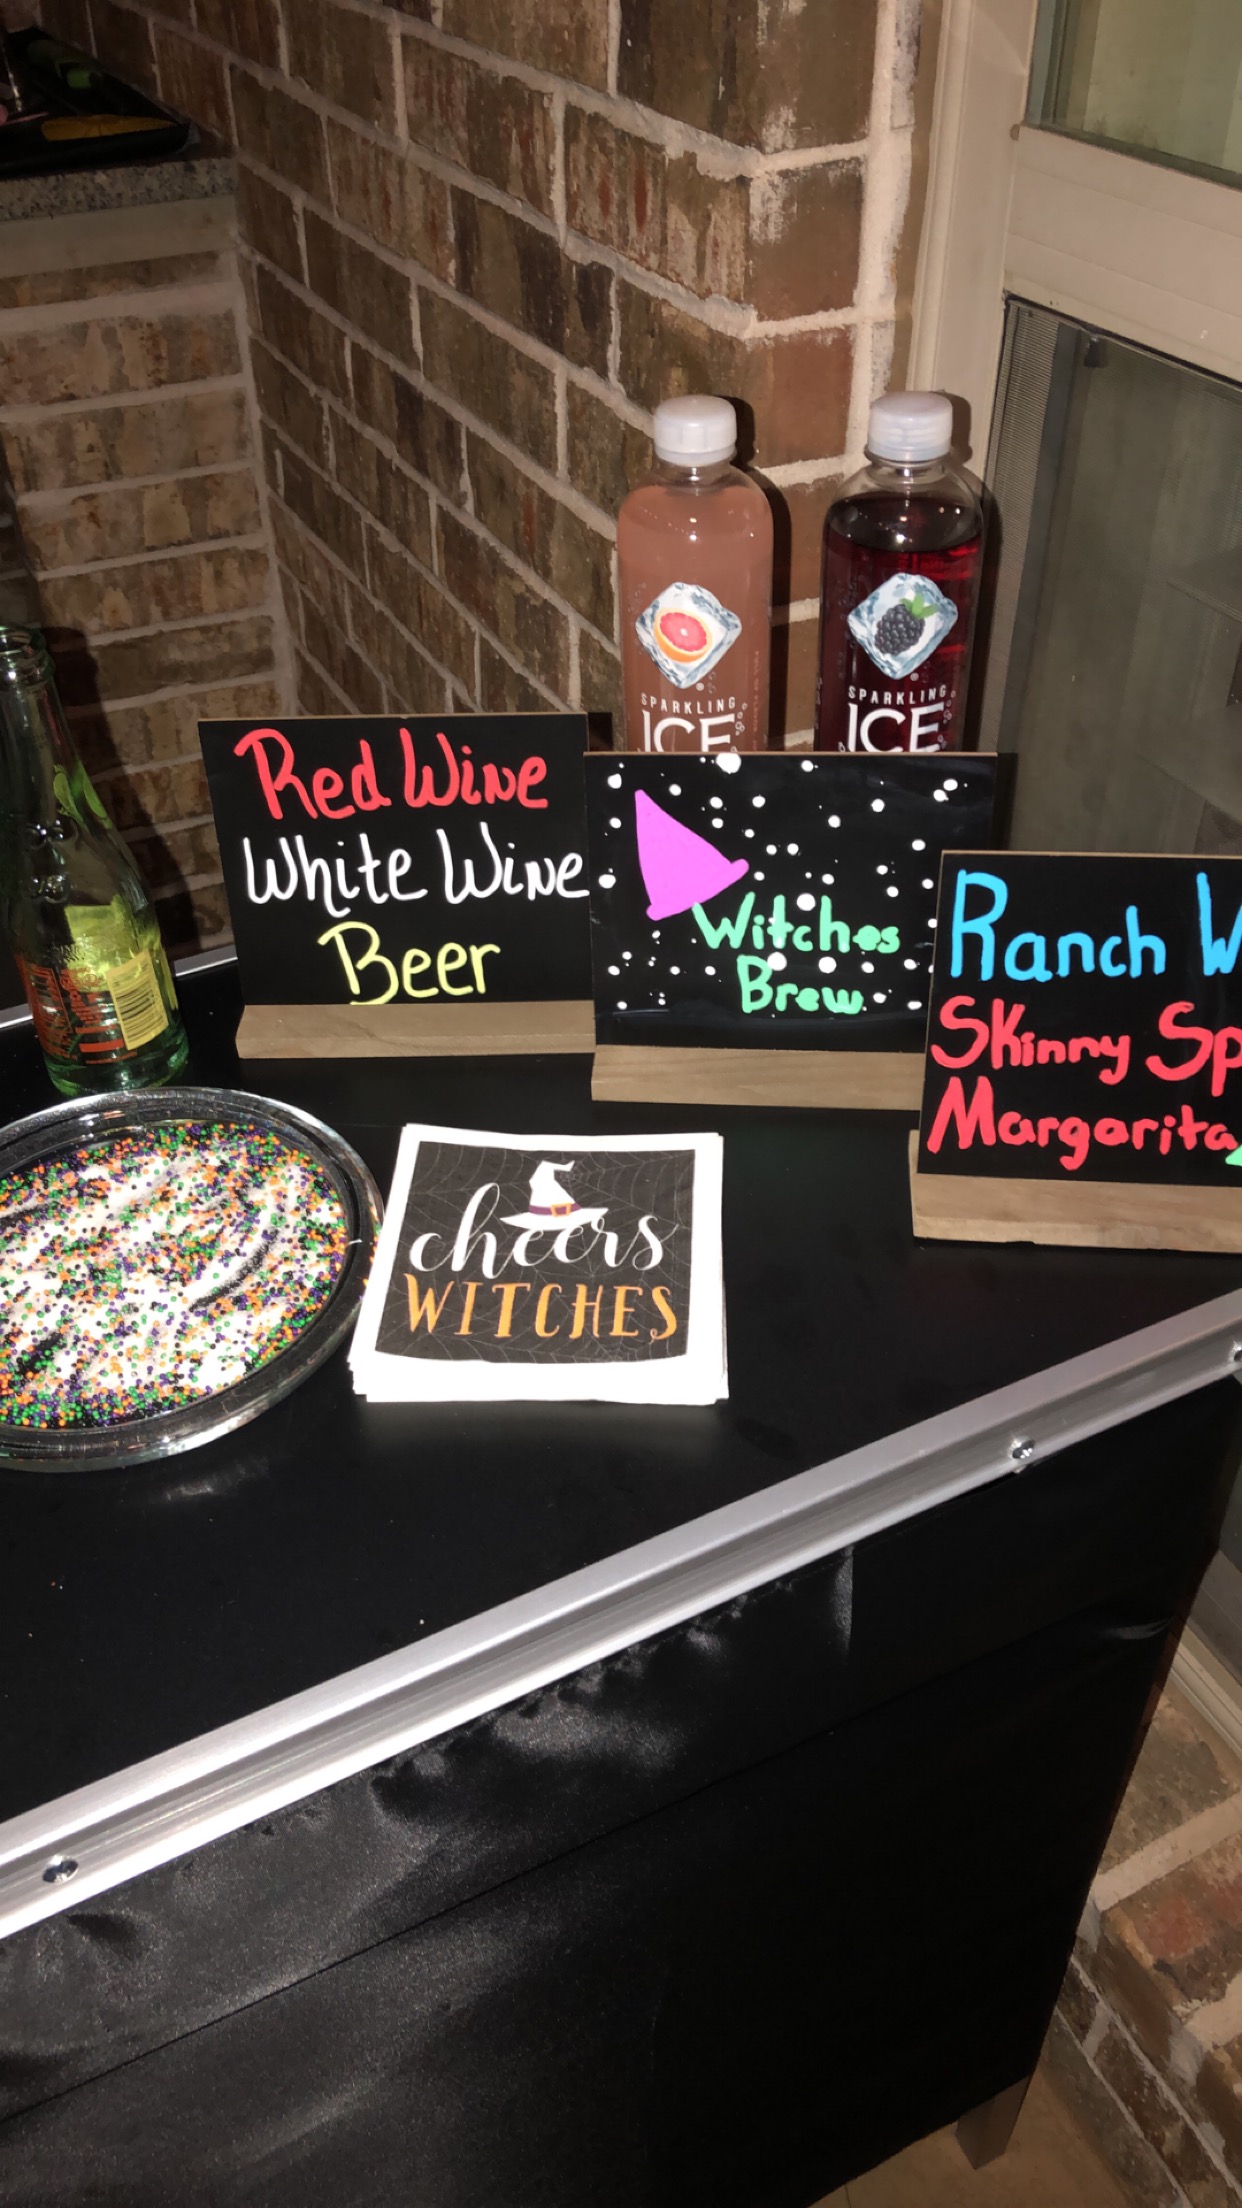 SPARKLING
ICE
SPARKLING
ICE
Red Wine
White Wine
Beer
Witches
Brew
Ranch W
Skinny Sp
Margarita
cheers
WITCHES